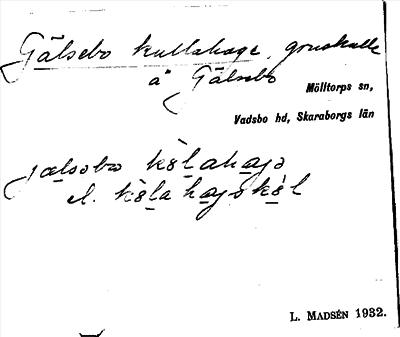 Gälsebo kullahage, gruskulle
å Gälsebo
Mölltorps sn,
Vadsbo hd, Skaraborgs län
jælsobo kølahajo
el. kølahajskøl
L. MADSÉN 1932.